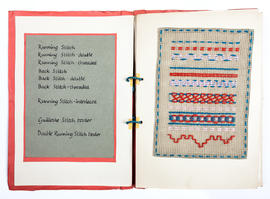 Running Stitch
Running Stitch - double
Running Stitch - threaded
Back Stitch
Back Stitch - double
Back Stitch - threaded
Running Stitch - interlaced
Guilloche Stitch border
Double Running Stitch border